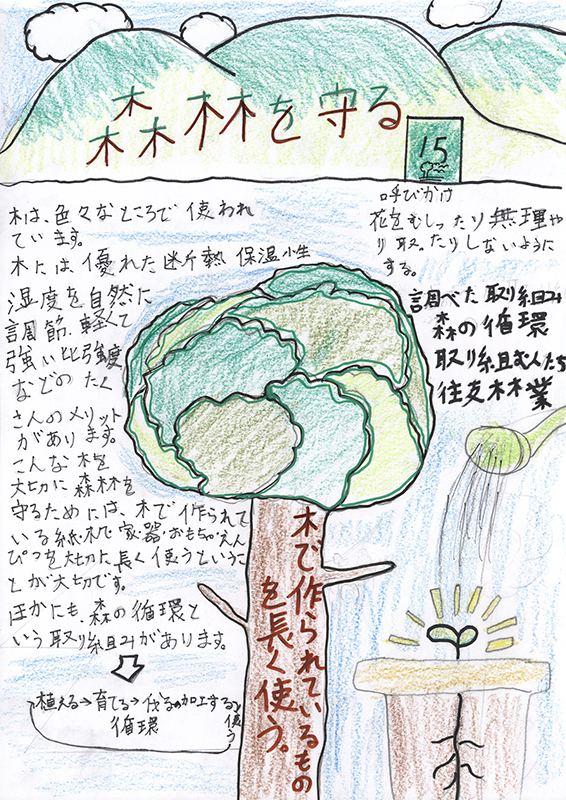 森林を守る
15
木は、色々なところで使われ
ています。
木には、優れた断熱保温性
湿度を自然に
調節、軽くて
強い比強度
などのたく
さんのメリット
があります。
こんな木を
大切に森林を
守るためには、木で作られて
いる紙、机、家、器、おもちゃ、えん
ぴつを大切に長く使うというこ
とが大切です。
ほかにも、森の循環と
いう取り組みがあります。
植える→育てる→伐る→加工する
使う
循環
呼びかけ
花をむしったり無理や
り取ったりしないように
する。
調べた取り組み
森の循環
取り組む人たち
住友林業
木で作られているもの
を長く使う。